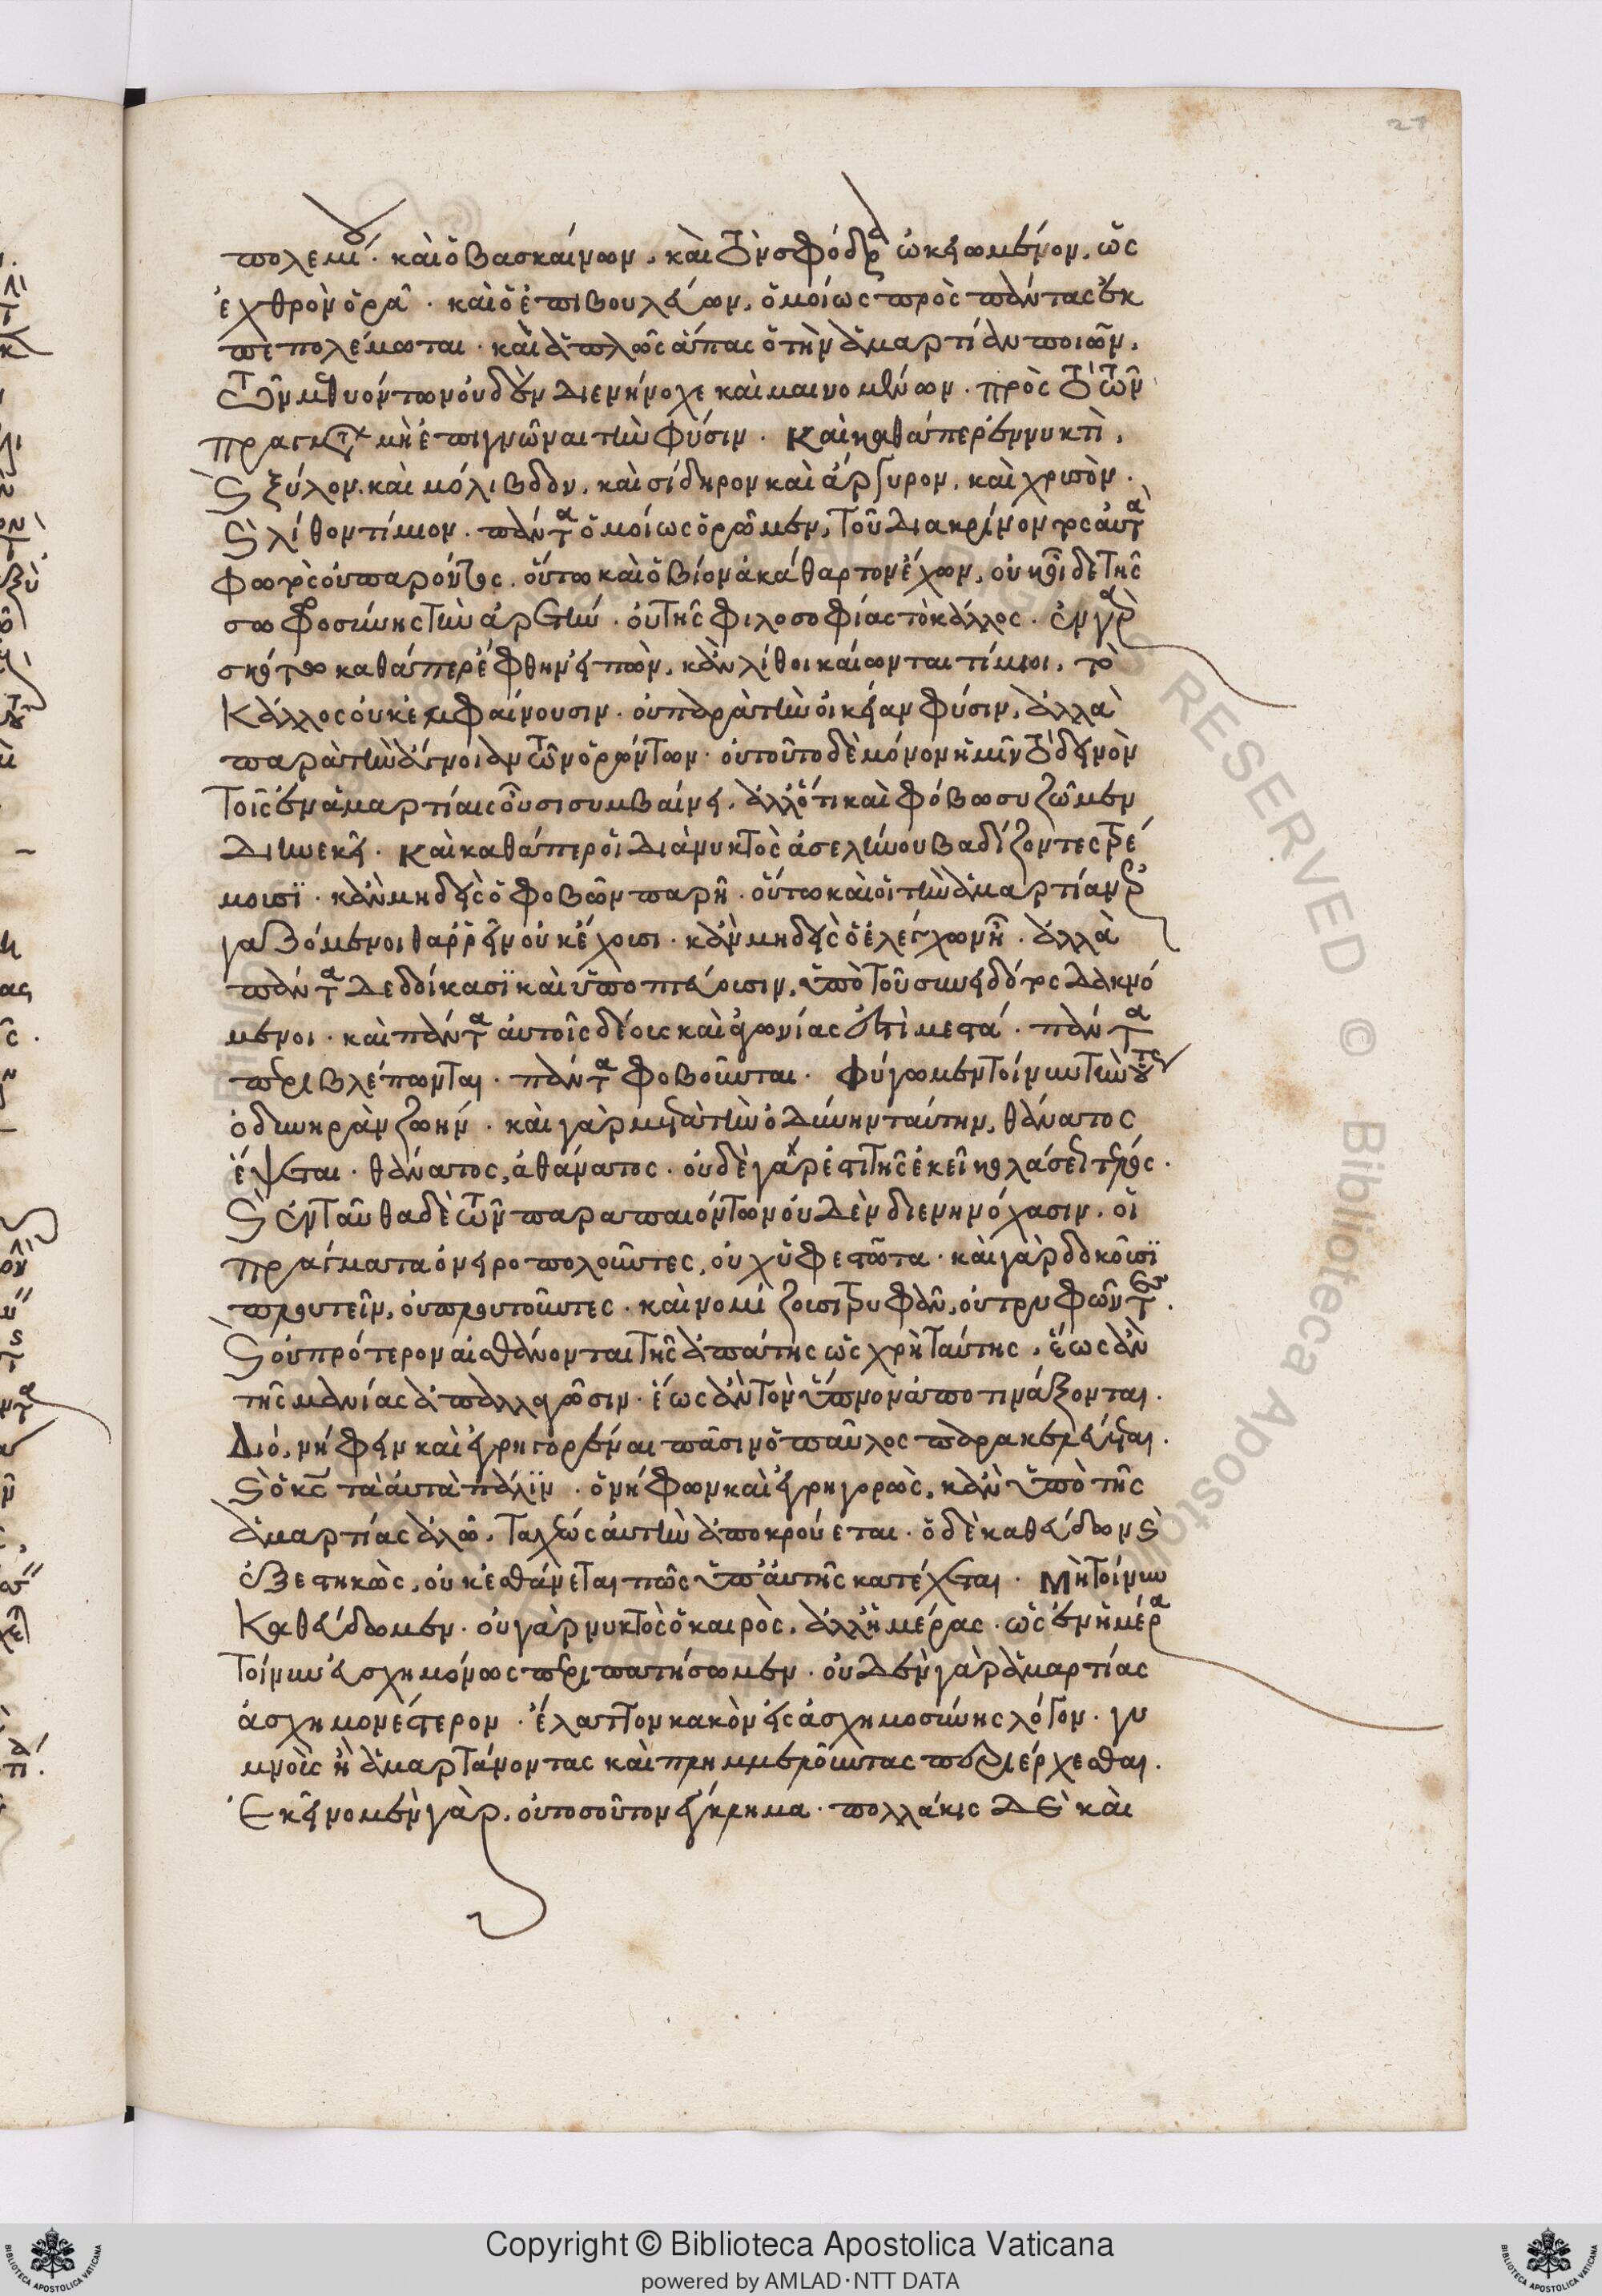 27
πολεμίου. καὶ ὁ βασκαίνων, καὶ τὸν σφόδρα ὠκειωμένον, ὡς
ἐχθρὸν ὁρᾶ. καὶ ὁ ἐπιβουλεύων, ὁμοίως πρὸς πάντας ἐκ
πεπολέμωται. καὶ ἁπλῶς ἅπας ὁ τὴν ἁμαρτίαν ποιῶν,
τῶν μεθυόντων οὐδὲν διενήνοχε καὶ μαινομένων. πρὸς τὸ τῶν
πραγμάτων μὴ ἐπιγνῶναι τὴν φύσιν. Καὶ καθάπερ ἐν νυκτὶ,
καὶ ξύλον, καὶ μόλιβδον, καὶ σίδηρον καὶ ἄργυρον, καὶ χρυσὸν.
καὶ λίθον τίμιον. πάντα ὁμοίως ὁρῶμεν, τοῦ διακρίνοντος αὐτὰ
φωτὸς οὐ παρόντος. οὕτω καὶ ὁ βίον ἀκάθαρτον ἔχων, οὐκ οἶδε τῆς
σωφροσύνης τὴν ἀρετὴν. οὐ τῆς φιλοσοφίας τὸ κάλλος. ἐν γὰρ
σκότω καθάπερ ἔφθην εἰπὼν, κἂν λίθοι κέωνται τίμιοι, τὸ
κάλλος οὐκ ἐμφαίνουσιν. οὐ παρὰ τὴν οἰκείαν φύσιν, ἀλλὰ
παρὰ τὴν ἄγνοιαν τῶν ὁρώντων. οὐ τοῦτο δὲ μόνον ἡμῖν τὸ δεινὸν
τοῖς ἐν ἁμαρτίαις οὖσι συμβαίνει, ἀλλ' ὅτι καὶ φόβω συζῶμεν
διηνεκεῖ. καὶ καθάπερ οἱ διὰ νυκτὸς ἀσελήνου βαδίζοντες τρέ
μουσϊ. κἂν μηδεὶς ὁ φοβῶν παρῆ. οὕτω καὶ οἱ τὴν ἁμαρτίαν ἐρ
γαζόμενοι θαρρεῖν οὐκ ἔχουσι. κἂν μηδεὶς ὁ ἐλέγχων ἦ. ἀλλὰ
πάντα δεδοίκασϊ καὶ ὑποπτεύουσιν, ὑπὸ τοῦ συνειδότος δακνό
μενοι. καὶ πάντα αὐτοῖς δέους καὶ ἀγωνίας ἐστὶ μεστά. πάντα
περιβλέπονται. πάντα φοβοῦνται. φύγωμεν τοίνυν τὴν οὕτως
ὀδυνηρὰν ζωήν. καὶ γὰρ μετὰ τὴν ὀδύνην ταύτην, θάνατος
ἕψεται. θάνατος, ἀθάνατος. οὐδὲ γάρ ἐστι τῆς ἐκεῖ κολάσεως τέλος.
καὶ ἐνταῦθα δὲ τῶν παραπαιόντων οὐδὲν διενηνόχασιν. οἱ
πράγματα ὀνειροπολοῦντες, οὐχ ὑφεστῶτα. καὶ γὰρ δοκοῦσϊ
πλουτεῖν, οὐ πλουτοῦντες. καὶ νομίζουσι τρυφᾶν, οὐ τρυφῶντες.
καὶ οὐ πρότερον αἰσθάνονται τῆς ἀπάτης ὡς χρὴ ταύτης, ἕως ἂν
τῆς μανίας ἀπαλλαγῶσιν. ἕως ἂν τὸν ὕπνον ἀποτινάξονται.
Διό, νήφειν καὶ ἐγρηγορέναι πᾶσιν ὁ παῦλος παρακελεύεται.
καὶ ὁ χριστὸς τὰ αὐτὰ πάλϊν. ὁ νήφων καὶ ἐγρηγορὼς, κἂν ὑπὸ τῆς
ἁμαρτίας ἁλῶ, ταχέως αὐτὴν ἀποκρούεται. ὁ δὲ καθεύδων καὶ
ἐξεστηκὼς, οὐκ αἰσθάνεται πῶς ὑπ' αὐτῆς κατέχεται. Μὴ τοίνυν
καθεύδωμεν. οὐ γὰρ νυκτὸς ὁ καιρὸς, ἀλλ' ἡμέρας. ὡς ἐν ἡμέρα
τοίνυν εὐσχημόνως περιπατήσωμεν. οὐδὲν γὰρ ἁμαρτίας
ἀσχημονέστερον. ἔλαττον κακὸν εἰς ἀσχημοσύνης λόγον. γυ
μνοὺς ἢ ἁμαρτάνοντας καὶ πλημμελοῦντας περιέρχεσθαι.
Ἐκεῖνο μὲν γὰρ, οὐ τοσοῦτον ἔγκλημα. πολλάκις δὲ καὶ
Copyright © Biblioteca Apostolica Vaticana
powered by AMLAD·NTT DATA